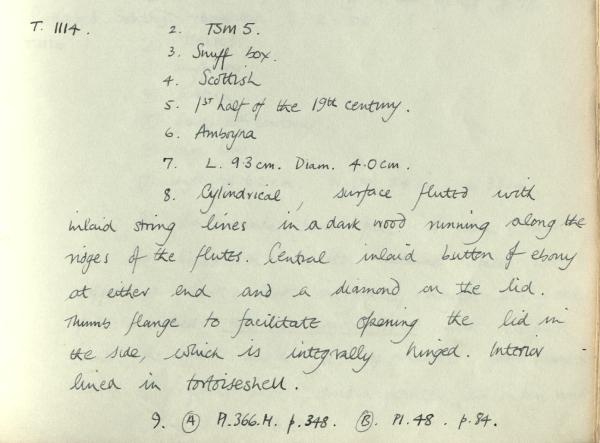 T. 1114. 2. TSM 5.
3. Snuff box.
4. Scottish
5. 1st half of the 19th century.
6. Amboyna
7. L. 9.3cm. Diam. 4.0cm.
8. Cylindrical, surface fluted with
inlaid string lines in a dark wood running along the
ridges of the flutes. Central inlaid button of ebony
at either end and a diamond on the lid.
Thumb flange to facilitate opening the lid in
the side, which is integrally hinged. Interior
lined in tortoiseshell.
9. A Pl.366.H. p.348. B. Pl.48. p.84.